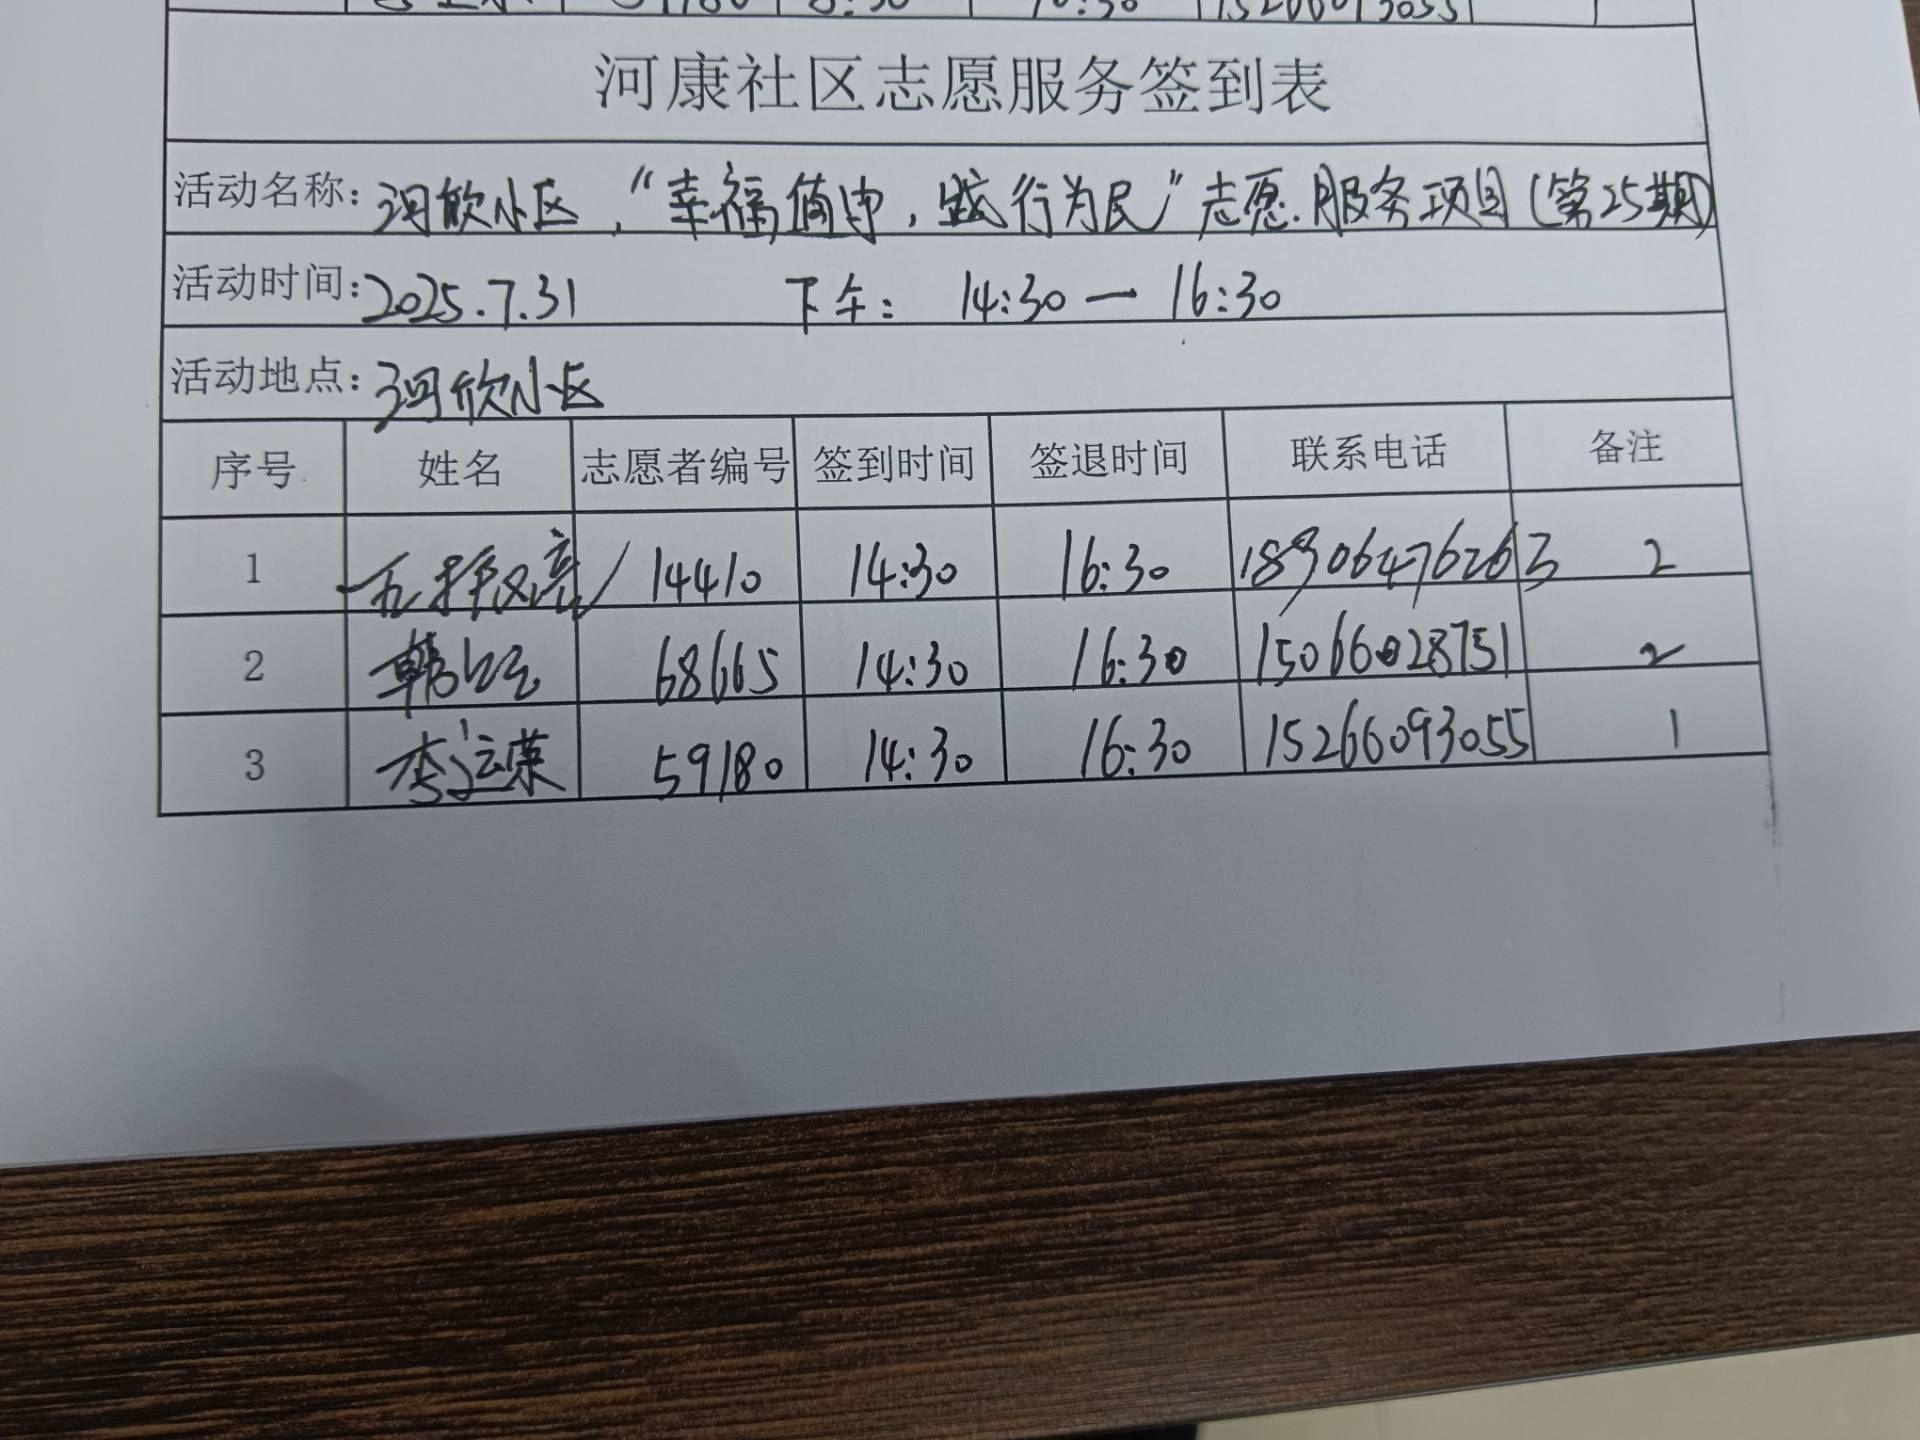 59180 8:30 10:30 15266093055 1
河康社区志愿服务签到表
活动名称: 河欣小区,“幸福值守,践行为民”志愿服务项目(第25期)
活动时间: 2025.7.31 下午: 14:30 — 16:30
活动地点: 河欣小区
序号 姓名 志愿者编号 签到时间 签退时间 联系电话 备注
1 14410 14:30 16:30 18306476263 2
2 韩 68665 14:30 16:30 15066028751 2
3 李运荣 59180 14:30 16:30 15266093055 1